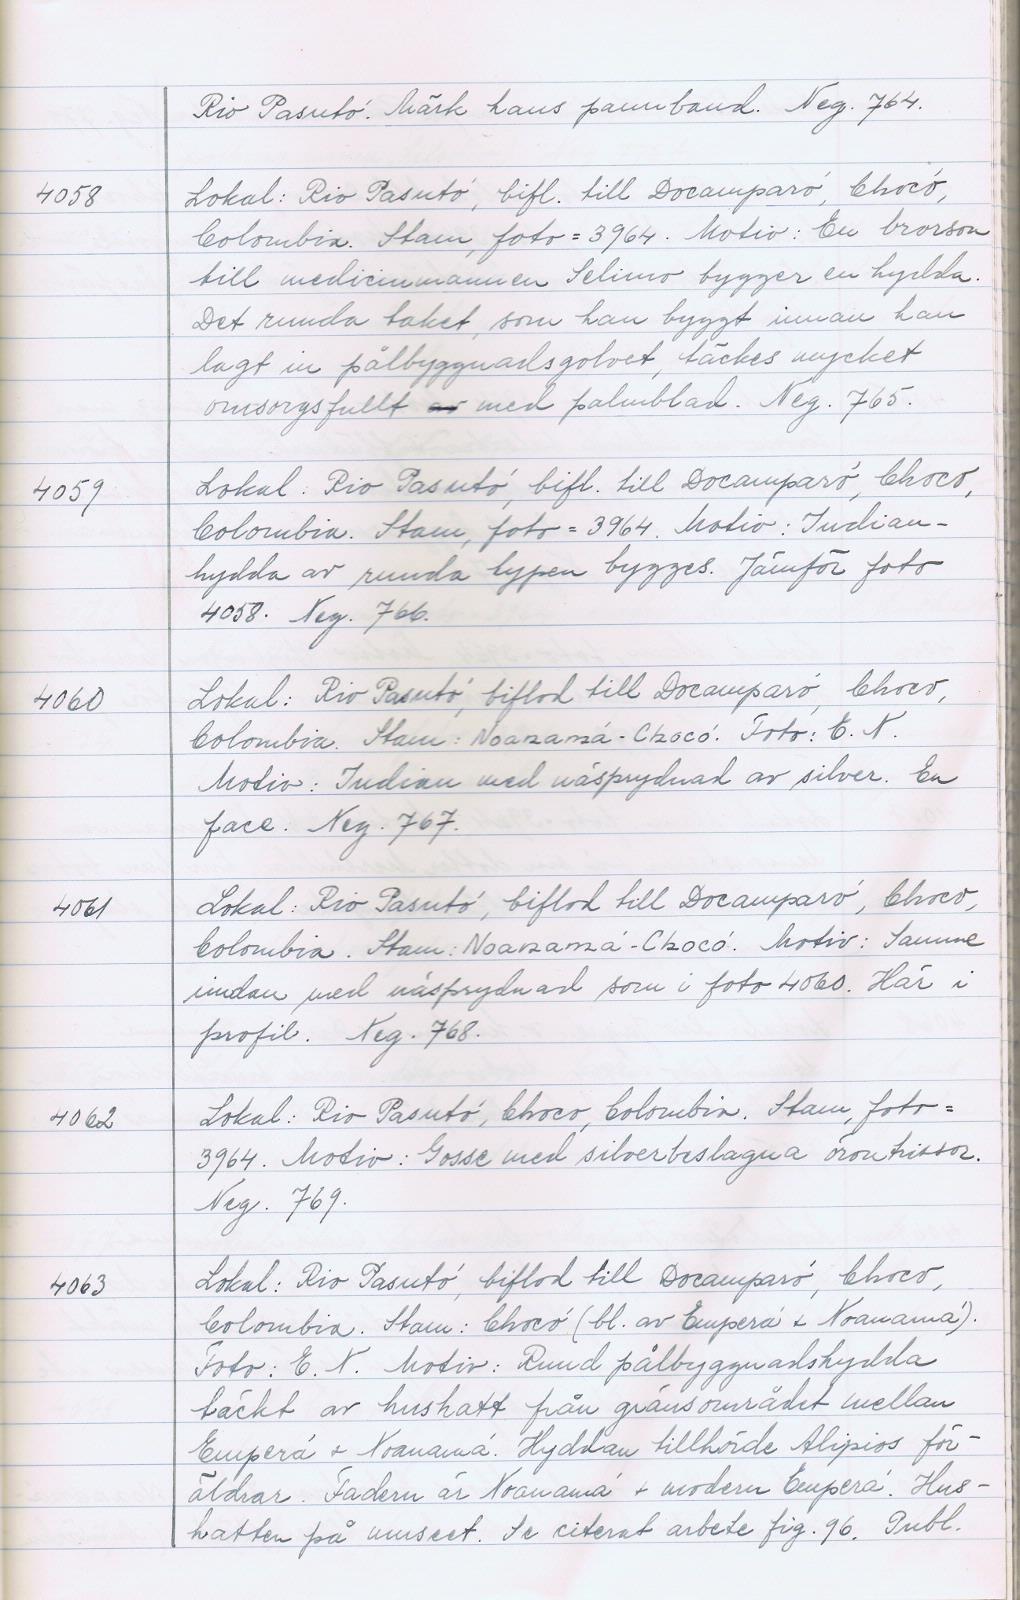 Rio Pasutó. Märk hans pannband. Neg. 764.
4058 Lokal: Rio Pasutó, bifl. till Docamparó, Chocó,
Colombia. Stam, foto = 3964. Motiv: En brorson
till medicinmannen Selimo bygger en hydda.
Det runda taket, som han byggt innan han
lagt in pålbyggnadsgolvet, täckes mycket
omsorgsfullt med palmblad. Neg. 765.
4059 Lokal: Rio Pasutó, bifl. till Docamparó, Choco,
Colombia. Stam, foto = 3964. Motiv: Indian-
hydda av runda typen bygges. Jämför foto
4058. Neg. 766.
4060 Lokal: Rio Pasutó, biflod till Docamparó, Choco,
Colombia. Stam: Noanamá-Chocó. Foto: E. N.
Motiv: Indian med näsprydnad av silver. En
face. Neg. 767.
4061 Lokal: Rio Pasutó, biflod till Docamparó, Choco,
Colombia. Stam: Noanamá-Chocó. Motiv: Samme
indian med näsprydnad som i foto 4060. Här i
profil. Neg. 768.
4062 Lokal: Rio Pasutó, Choco, Colombia. Stam, foto =
3964. Motiv: Gosse med silverbeslagna örontrissor.
Neg. 769.
4063 Lokal: Rio Pasutó, biflod till Docamparó, Choco,
Colombia. Stam: Chocó (bl. av Emperá + Noanamá).
Foto: E. N. Motiv: Rund pålbyggnadshydda
täckt av hushatt från gränsområdet mellan
Emperá + Noanamá. Hyddan tillhörde Alipios för-
äldrar. Fadern är Noanamá + modern Emperá. Hus-
hatten på museet. Se citerat arbete fig. 96. Publ.